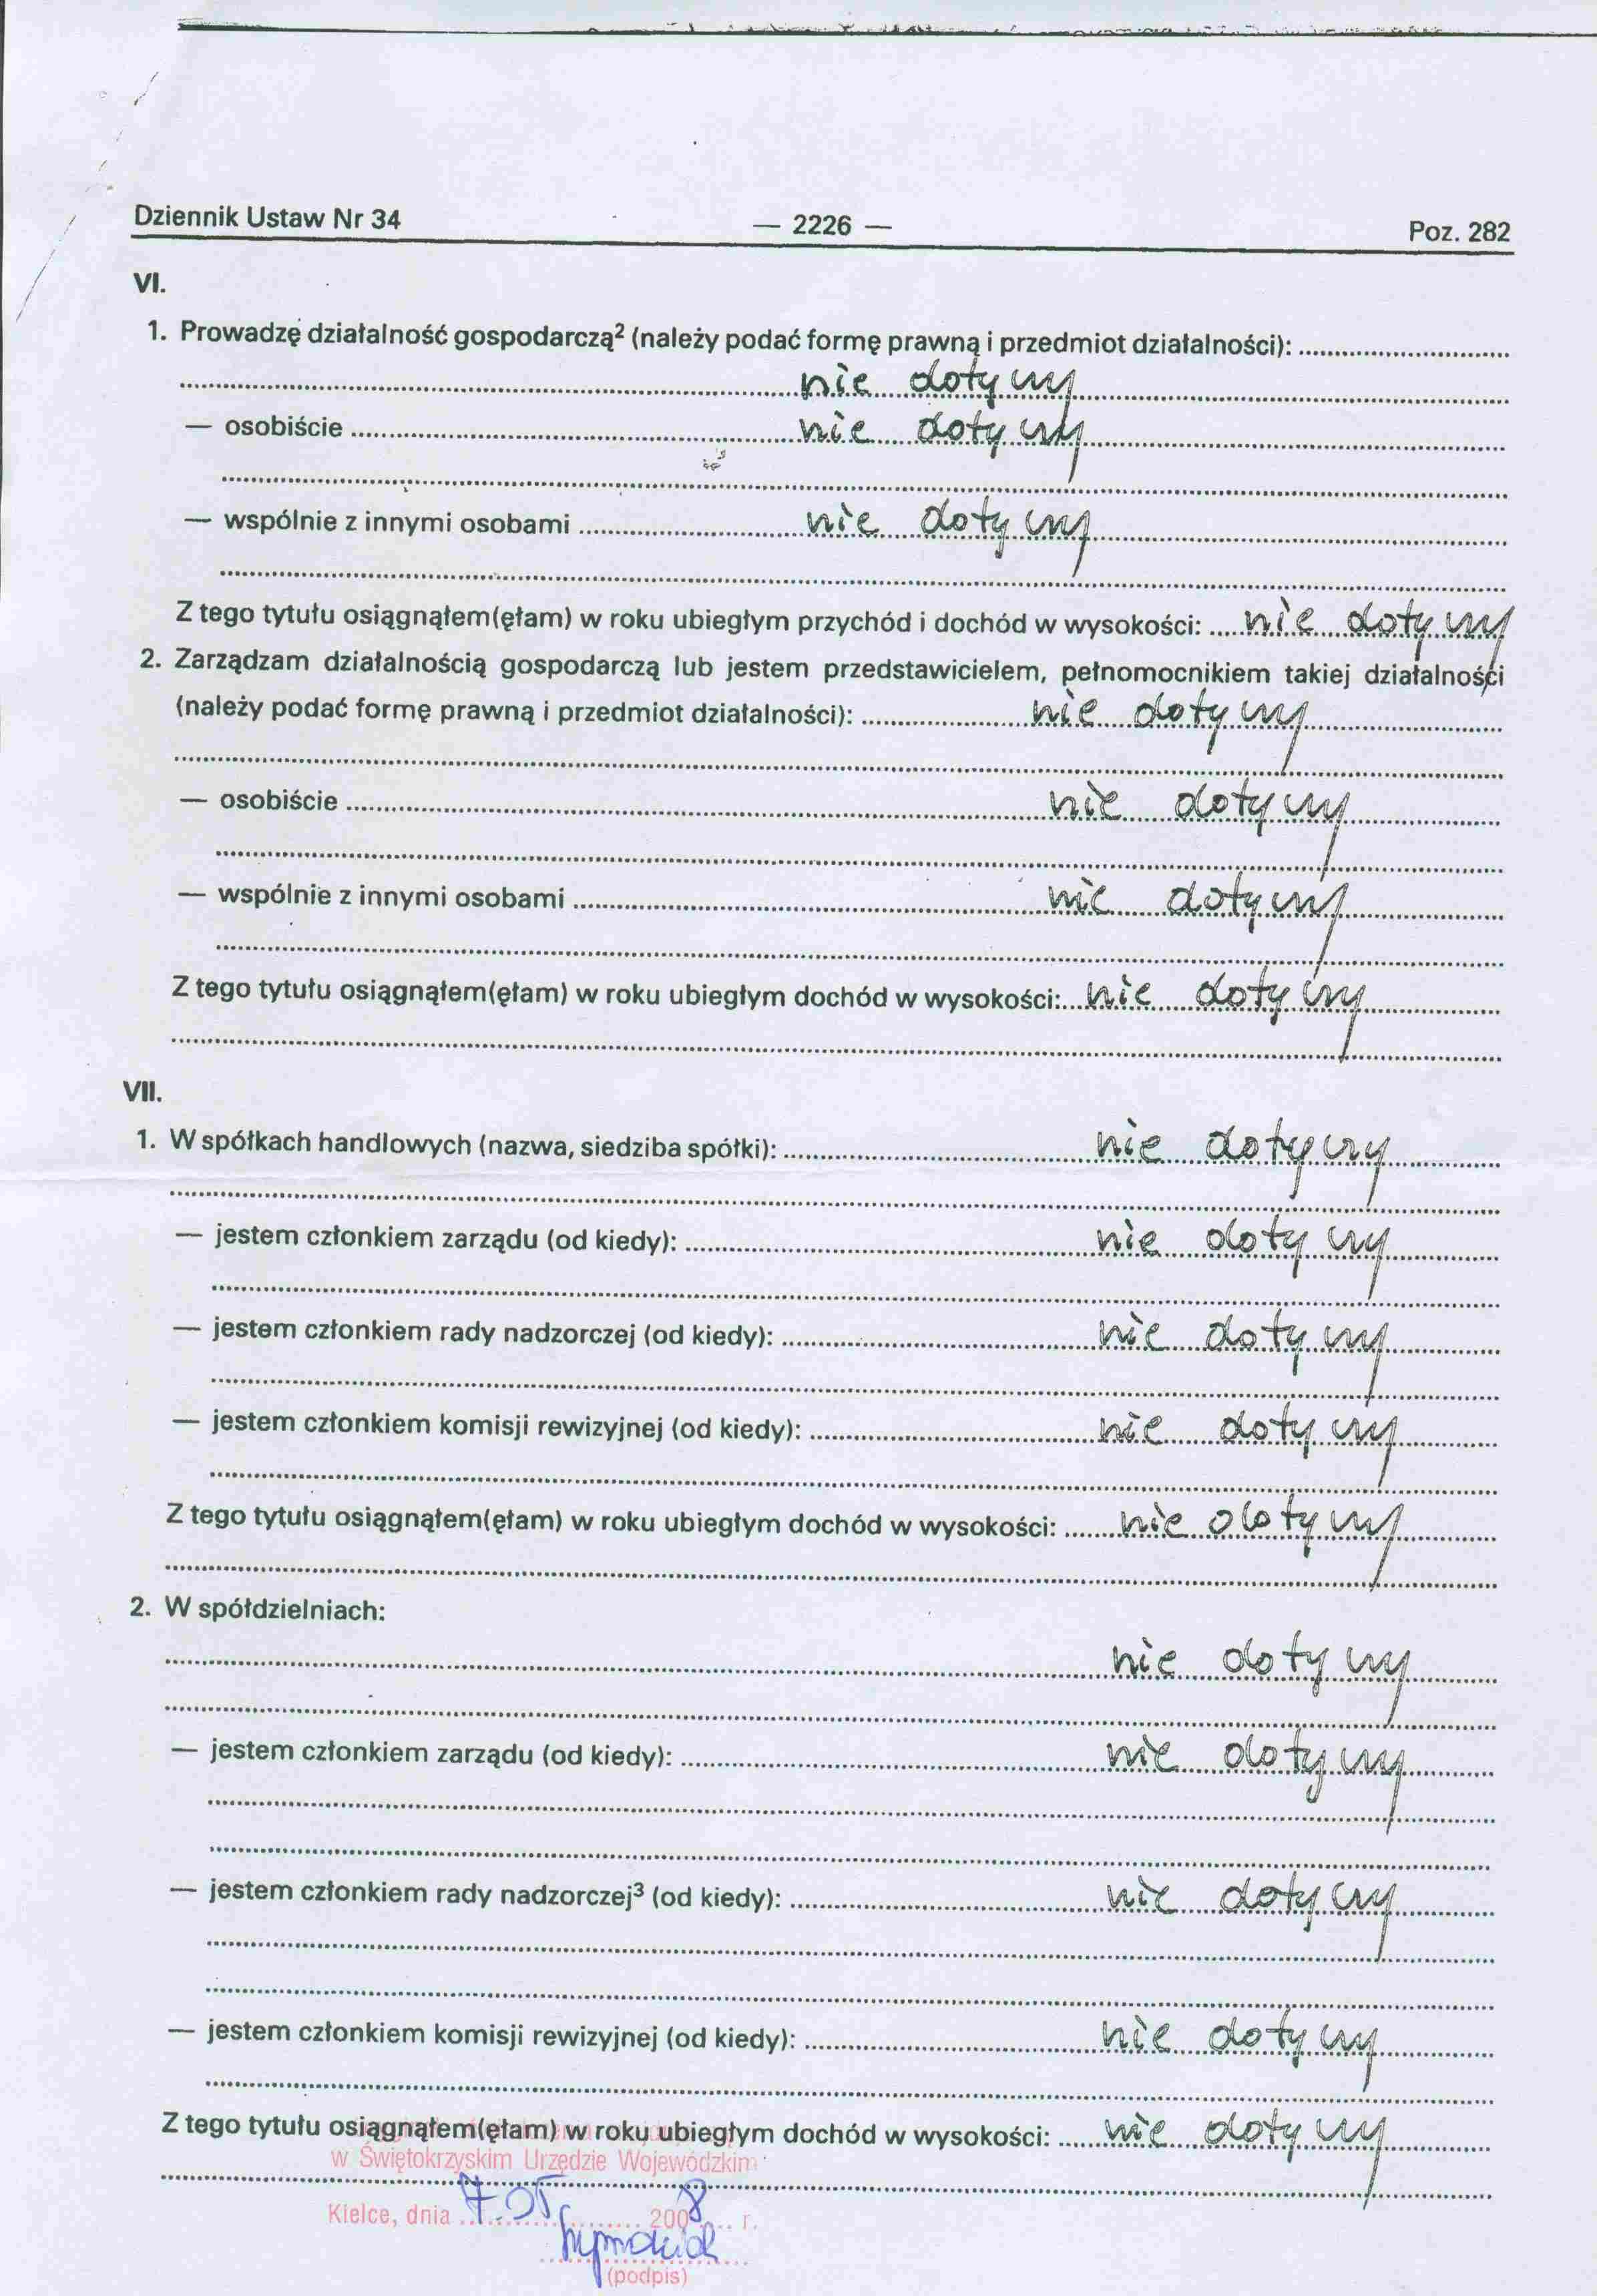 Dziennik Ustaw Nr 34 — 2226 — Poz. 282
VI.
1. Prowadzę działalność gospodarczą² (należy podać formę prawną i przedmiot działalności):
nie dotyczy
— osobiście nie dotyczy
— wspólnie z innymi osobami nie dotyczy
Z tego tytułu osiągnąłem(ęłam) w roku ubiegłym przychód i dochód w wysokości: nie dotyczy
2. Zarządzam działalnością gospodarczą lub jestem przedstawicielem, pełnomocnikiem takiej działalności
(należy podać formę prawną i przedmiot działalności): nie dotyczy
— osobiście nie dotyczy
— wspólnie z innymi osobami nie dotyczy
Z tego tytułu osiągnąłem(ęłam) w roku ubiegłym dochód w wysokości: nie dotyczy
VII.
1. W spółkach handlowych (nazwa, siedziba spółki): nie dotyczy
— jestem członkiem zarządu (od kiedy): nie dotyczy
— jestem członkiem rady nadzorczej (od kiedy): nie dotyczy
— jestem członkiem komisji rewizyjnej (od kiedy): nie dotyczy
Z tego tytułu osiągnąłem(ęłam) w roku ubiegłym dochód w wysokości: nie dotyczy
2. W spółdzielniach:
nie dotyczy
— jestem członkiem zarządu (od kiedy): nie dotyczy
— jestem członkiem rady nadzorczej³ (od kiedy): nie dotyczy
— jestem członkiem komisji rewizyjnej (od kiedy): nie dotyczy
Z tego tytułu osiągnąłem(ęłam) w roku ubiegłym dochód w wysokości: nie dotyczy
w Świętokrzyskim Urzędzie Wojewódzkim
Kielce, dnia 7.05. 2008 r.
(podpis)